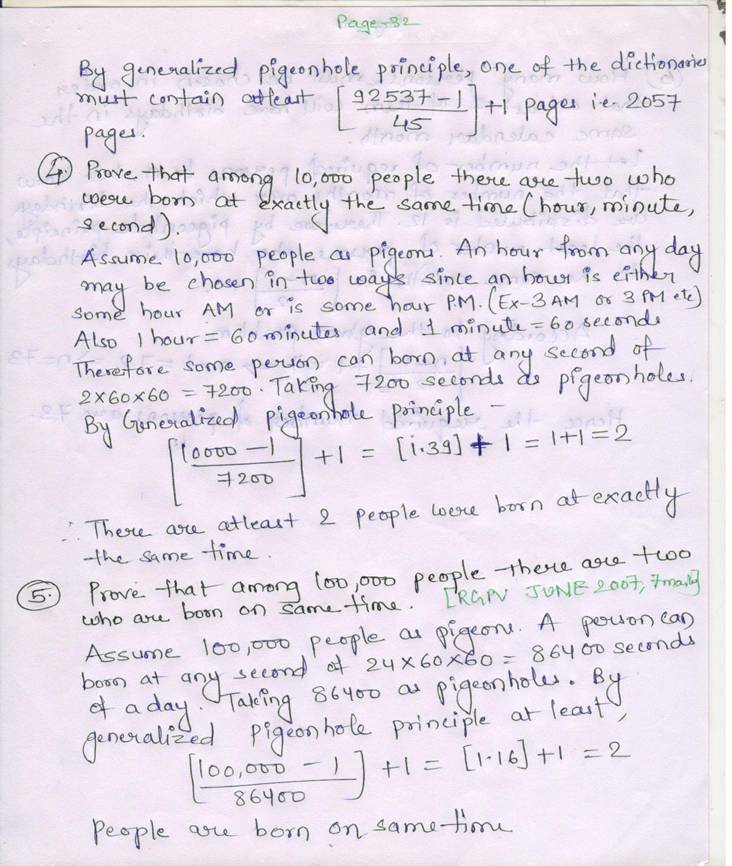 Page-32
By generalized pigeonhole principle, one of the dictionaries
must contain atleast [92537-1 / 45] +1 pages i.e. 2057
pages.
4. Prove that among 10,000 people there are two who
were born at exactly the same time (hour, minute,
second).
Assume 10,000 people as pigeons. An hour from any day
may be chosen in two ways since an hour is either
some hour AM or is some hour P.M. (Ex-3 AM or 3 PM etc)
Also 1 hour = 60 minutes and 1 minute = 60 seconds
Therefore some person can born at any second of
2x60x60 = 7200. Taking 7200 seconds as pigeonholes.
By Generalized pigeonhole principle -
[10000-1 / 7200] +1 = [1.39] + 1 = 1+1=2
∴ There are atleast 2 people were born at exactly
the same time.
5. Prove that among 100,000 people there are two
who are born on same time. [RGPV JUNE 2007, 7marks]
Assume 100,000 people as pigeons. A person can
born at any second of 24x60x60 = 86400 seconds
of a day. Taking 86400 as pigeonholes. By
generalized pigeonhole principle at least,
[100,000 - 1 / 86400] +1 = [1.16] +1 = 2
people are born on same time